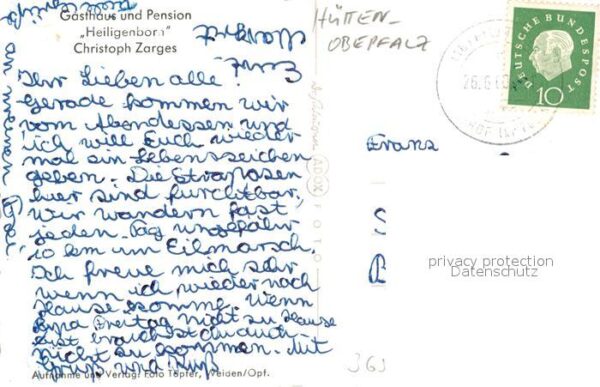 Gasthaus und Pension
„Heiligenborn"
Christoph Zarges
HÜTTEN-
OBEPFALZ
DEUTSCHE BUNDESPOST
10
26.6.60
Ihr Lieben alle!
Gerade kommen wir
vom Abendessen und
ich will Euch wieder
mal ein Lebenszeichen
geben. Die Strapazen
hier sind furchtbar,
wir wandern fast
jeden Tag ungefähr
10 km im Eilmarsch.
Ich freue mich sehr
wenn ich wieder nach
Hause komme. Wenn
Freitag nicht zu Hause
ist brauchst du auch
nicht zu kommen. Mit
Gruß und Kuß
Franz
S
ADOX FOTO
privacy protection
Datenschutz
363
Aufnahme und Verlag: Foto Töpfer, Weiden/Opf.